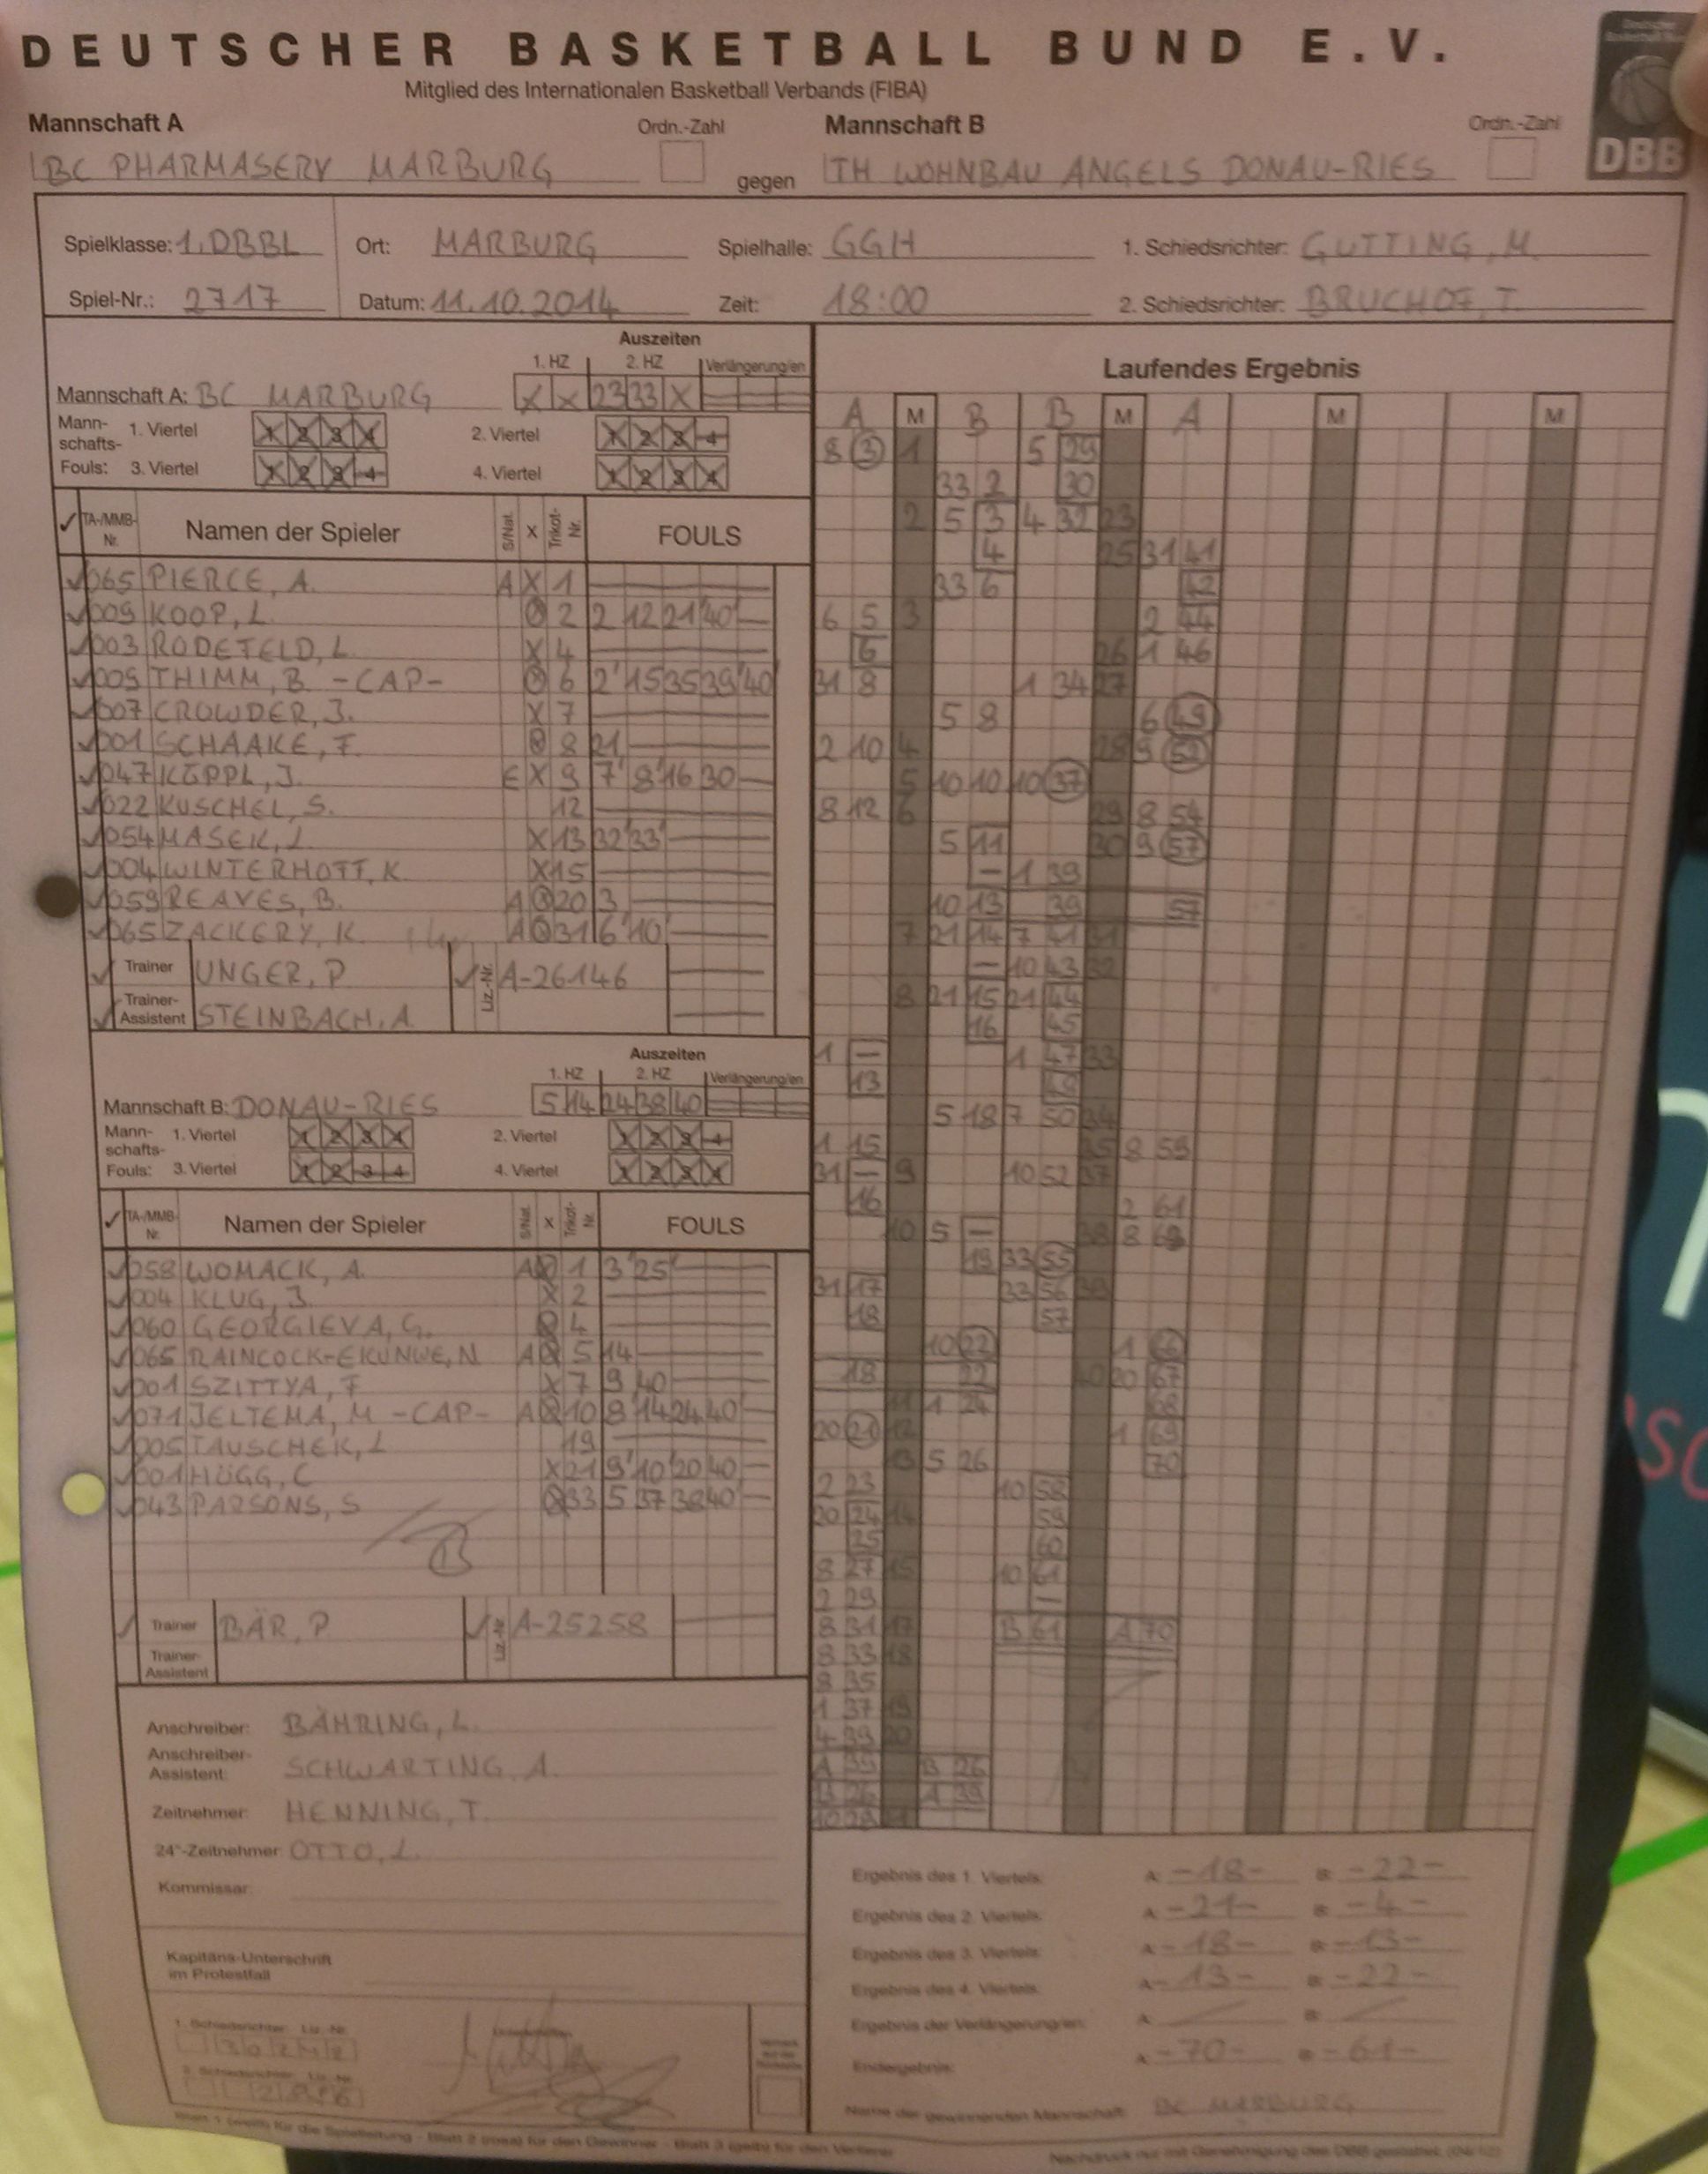 DEUTSCHER BASKETBALL BUND E.V.
Mitglied des Internationalen Basketball Verbands (FIBA)
DBB
Mannschaft A Ordn.-Zahl Mannschaft B Ordn.-Zahl
BC PHARMASERV MARBURG gegen TH WOHNBAU ANGELS DONAU-RIES
Spielklasse: 1.DBBL Ort: MARBURG Spielhalle: GGH 1. Schiedsrichter: GUTTING, M.
Spiel-Nr.: 2717 Datum: 11.10.2014 Zeit: 18:00 2. Schiedsrichter: BRUCHOF, T.
Auszeiten
1. HZ 2. HZ Verlängerung/en
Mannschaft A: BC MARBURG X X 23 33 X
Mann-schafts-Fouls: 1. Viertel 1 2 3 4 2. Viertel 1 2 3 4
3. Viertel 1 2 3 4 4. Viertel 1 2 3 4
TA-/MMB-Nr. Namen der Spieler S/Nat. X Trikot-Nr. FOULS
065 PIERCE, A. A X 1
009 KOOP, L. X 2 2 12 21 40
003 RODEFELD, L. X 4
009 THIMM, B. -CAP- X 6 2' 15 35 39' 40
007 CROWDER, J. X 7
001 SCHAAKE, F. X 8 21
047 KÖPPL, J. E X 9 7' 8' 16 30
022 KUSCHEL, S. 12
054 MASEK, L. X 13 32' 33'
004 WINTERHOFF, K. X 15
059 REAVES, B. A X 20 3
065 ZACKERY, K. A X 31 6' 10'
Trainer UNGER, P Liz.-Nr. A-26146
Trainer-Assistent STEINBACH, A.
Auszeiten
1. HZ 2. HZ Verlängerung/en
Mannschaft B: DONAU-RIES 5 14 24 38 40
Mann-schafts-Fouls: 1. Viertel 1 2 3 4 2. Viertel 1 2 3 4
3. Viertel 1 2 3 4 4. Viertel 1 2 3 4
TA-/MMB-Nr. Namen der Spieler S/Nat. X Trikot-Nr. FOULS
058 WOMACK, A. A X 1 3' 25'
004 KLUG, J. X 2
060 GEORGIEVA, G. X 4
065 RAINCOCK-EKUNWE, N A X 5 14
001 SZITTYA, F X 7 9 40
071 JELTEMA, M -CAP- A X 10 8' 14 24 40'
005 TAUSCHEK, L 19
001 HÜGG, C X 21 9' 10' 20 40
043 PARSONS, S X 33 5 37 38 40'
Trainer BÄR, P Liz.-Nr. A-25258
Trainer-Assistent
Anschreiber: BÄHRING, L.
Anschreiber-Assistent: SCHWARTING, A.
Zeitnehmer: HENNING, T.
24"-Zeitnehmer OTTO, L.
Kommissar:
Kapitäns-Unterschrift im Protestfall
1. Schiedsrichter Liz.-Nr.
2. Schiedsrichter Liz.-Nr.
Laufendes Ergebnis
A M B B M A M M
8 3 1 5 29
33 2 30
2 5 3 4 32 23
4 25 31 41
33 6 42
6 5 3 2 44
6 26 1 46
31 8 1 34 27
5 8 6 49
2 10 4 28 9 52
5 10 10 10 37
8 12 6 29 8 54
5 11 30 9 57
- 1 39
10 13 39 57
7 21 14 7 41 31
- 10 43 32
8 21 15 21 44
16 45
1 - 1 47 33
13 48
5 18 7 50 34
1 15 35 8 59
31 - 9 10 52 37
16 2 61
10 5 - 38 8 63
19 33 55
31 17 33 56 39
18 57
10 22 1 66
18 22 40 20 67
11 1 24 68
20 21 12 1 69
13 5 26 70
2 23 10 58
20 24 14 59
25 60
8 27 15 10 61
2 29 -
8 31 17 B 61 A 70
8 33 18
8 35
1 37 19
4 39 20
A 39 B 26
B 26 A 39
10 28
Ergebnis des 1. Viertels: A: -18- B: -22-
Ergebnis des 2. Viertels: A: -21- B: -4-
Ergebnis des 3. Viertels: A: -18- B: -13-
Ergebnis des 4. Viertels: A: -13- B: -22-
Ergebnis der Verlängerung/en: A: B:
Endergebnis: A: -70- B: -61-
Name der gewinnenden Mannschaft: BC MARBURG
Blatt 1 (weiß) für die Spielleitung - Blatt 2 (rosa) für den Gewinner - Blatt 3 (gelb) für den Verlierer
Nachdruck nur mit Genehmigung des DBB gestattet.